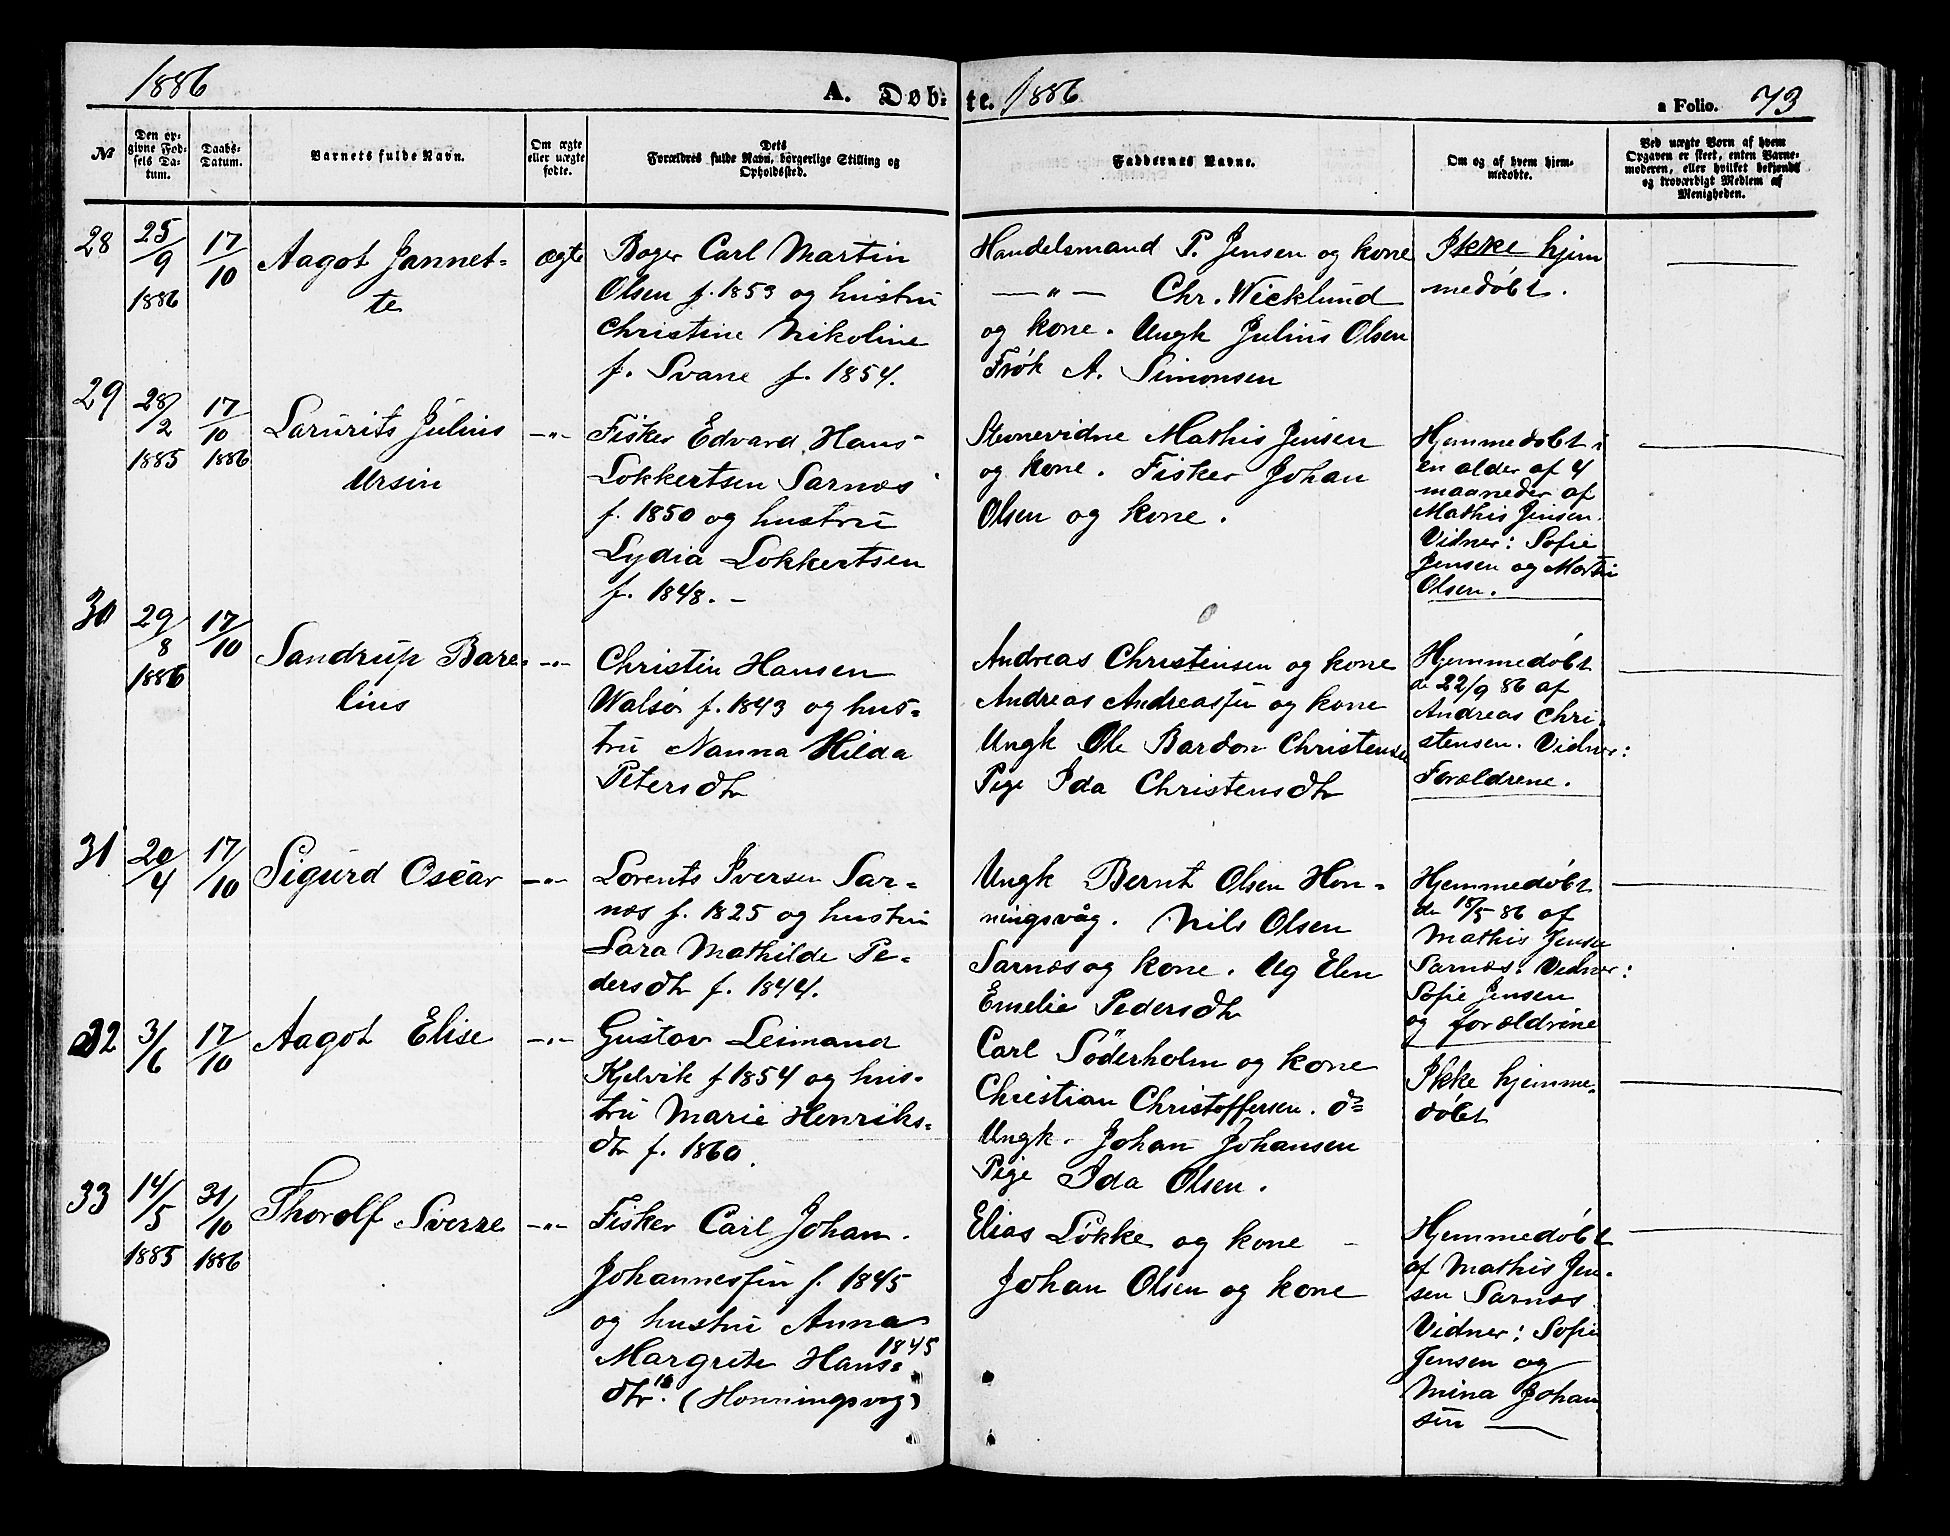 1886
A. Døb-
te. 1886
a Folio. 73
№
Den op-
givne Fød-
sels Da-
tum.
Daabs-
Datum.
Barnets fulde Navn.
Om ægte
eller uægte
fødte.
Dets
Forældres fulde Navn, borgerlige Stilling og
Opholdssted.
Faddernes Navne.
Om og af hvem hjem-
medøbte.
Ved uægte Børn af hvem
Opgaven er skeet, enten Barne-
moderen, eller hvilket bekjendt
og troværdigt Medlem af
Menigheden.
28
25/9
1886
17/10
Aagot Jannet-
te
ægte
Bager Carl Martin
Olsen f. 1853 og hustru
Christine Nikoline
f. Svane f. 1854.
Handelsmand P. Jensen og kone
—"— Chr. Wicklund
og kone. Ungk Julius Olsen
Frøk A. Simonsen
Ikke hjem
medøbt.
29
28/2
1885
17/10
1886
Laurits Julius
Ursin
—"—
Fisker Edvard Hans
Lokkertsen Sarnes
f. 1850 og hustru
Lydia Lokkertsen
f. 1848. –
Stevnevidne Mathis Jensen
og kone. Fisker Johan
Olsen og kone.
Hjemmedøbt i
en alder af 4
maaneder af
Mathis Jensen.
Vidner: Sofie
Jensen og Martin
Olsen.
30
29/8
1886
17/10
Sandrup Bare-
lius
—"—
Christin Hansen
Walsø f. 1843 og hus-
tru Nanna Hilda
Petersdtr
Andreas Christensen og kone
Andreas Andreassen og kone
Ungk Ole Bardon Christensen
Pige Ida Christensdtr
Hjemmedøbt
de 22/9 86 af
Andreas Chri-
stensen. Vidner:
Forældrene.
31
20/4
17/10
Sigurd Oscar
—"—
Lorents Iversen Sar-
nes f. 1825 og hustru
Sara Mathilde Pe-
dersdtr f. 1844.
Ungk Bernt Olsen Hon-
ningsvåg. Nils Olsen
Sarnes og kone. Ug Elen
Emelie Pedersdtr
Hjemmedøbt
de 18/5 86 af
Mathis Jensen
Sarnes. Vidner:
Sofie Jensen
og forældrene
32
3/6
17/10
Aagot Elise
—"—
Gustav Leimand
Kjelvik f 1854 og hus-
tru Marie Henriks-
dtr f. 1860.
Carl Söderholm og kone
Christian Christoffersen. do
Ungk. Johan Johansen
Pige Ida Olsen.
Ikke hjemme-
døbt
33
14/5
1885
31/10
1886
Thorolf Sverre
—"—
Fisker Carl Johan
Johannessen f. 1845
og hustru Anna
Margrete Hans-
1845
dtr. (Honningsvog)
Elias Løkke og kone –
Johan Olsen og kone
Hjemmedøbt
af Mathis Jen-
sen Sarnes
Vidner: Sofie
Jensen og
Mina Johan
sen